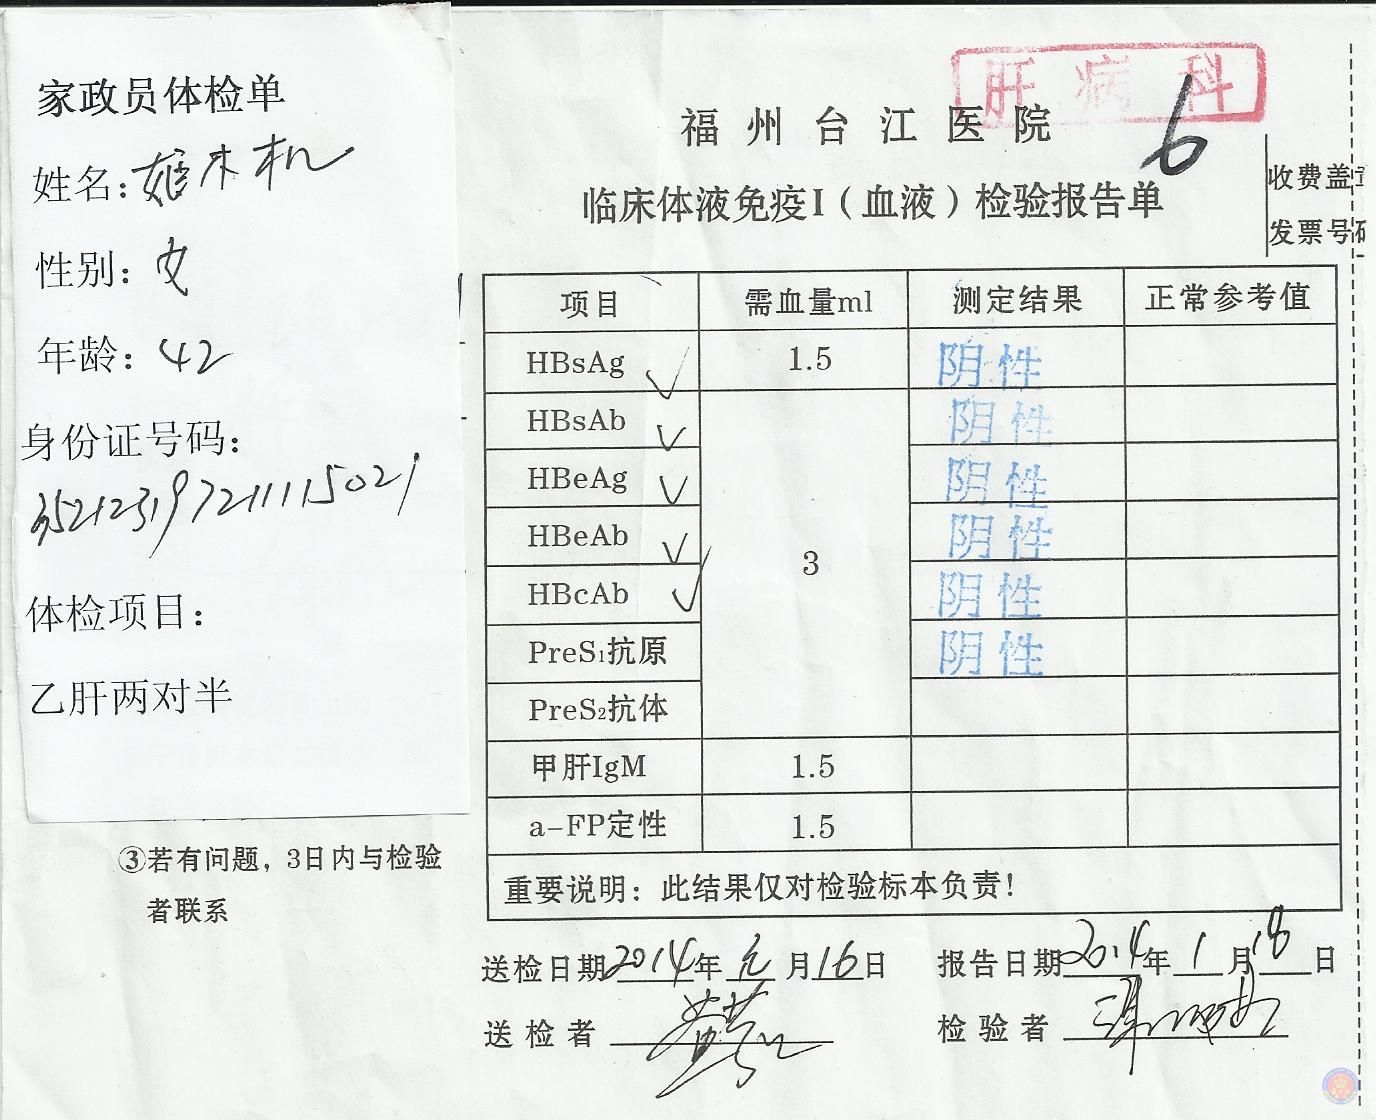 家政员体检单
姓名:
性别: 女
年龄: 42
身份证号码:
352123197211115021
体检项目:
乙肝两对半
③若有问题，3日内与检验
者联系
肝病科
福州台江医院
6
临床体液免疫I（血液）检验报告单
收费盖
发票号
项目 需血量ml 测定结果 正常参考值
HBsAg 1.5 阴性
HBsAb 阴性
HBeAg 阴性
HBeAb 阴性
3
HBcAb 阴性
PreS₁抗原 阴性
PreS₂抗体
甲肝IgM 1.5
a-FP定性 1.5
重要说明：此结果仅对检验标本负责！
送检日期2014年元月16日 报告日期2014年1月18日
送检者 检验者